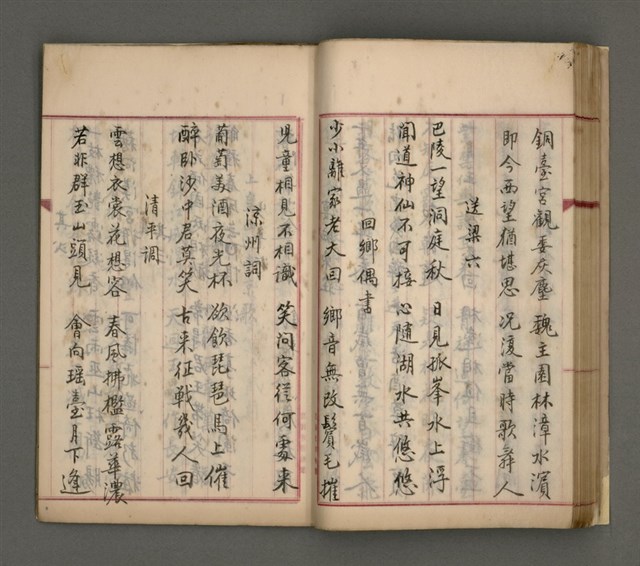 銅臺宮觀委灰塵 魏主園林漳水濱
即今西望猶堪思 况復當時歌舞人
送梁六
巴陵一望洞庭秋 日見孤峯水上浮
聞道神仙不可接 心隨湖水共悠悠
回鄉偶書
少小離家老大回 鄉音無改鬢毛摧
兒童相見不相識 笑问客從何處来
涼州詞
葡萄美酒夜光杯 欲飲琵琶馬上催
醉卧沙中君莫笑 古来征戰幾人回
清平调
雲想衣裳花想容 春風拂檻露華濃
若非群玉山頭見 會向瑶臺月下逢